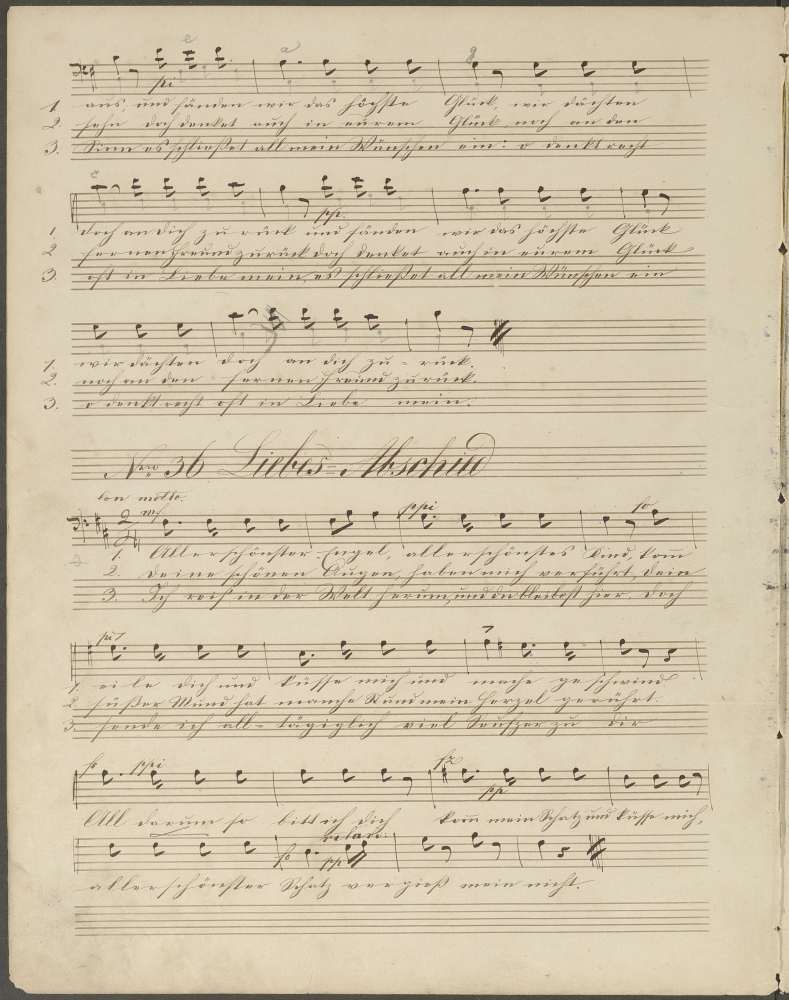 e a g
pi
1. aus, und fänden wir das höchste Glück, wir dächten
2. sehn doch denket auch in eurem Glück noch an den
3. Sinn es schließet all mein Wünschen ein: o denkt recht
e
pp.
1. doch an dich zurück und fänden wir das höchste Glück
2. fernen Freund zurück doch denket auch in eurem Glück
3. oft in Liebe mein, es schließet all mein Wünschen ein
1. wir dächten doch an dich zu-rück.
2. noch an den fernen Freund zurück.
3. o denkt recht oft in Liebe mein.
Nro 36 Liebes=Abschied
con molto.
2/4 mf ppi fo
1. Allerschönster Engel, allerschönstes Kind, komm
2. Deine schönen Augen, haben mich verführt, dein
3. Ich reis' in der Welt herum, und du bleibest hier. Doch
pi
1. eile dich und küsse mich und mache geschwind
2. süßer Mund hat manche Stund mein Herzel gerührt.
3. sende ich all=täglich viel Seufzer zu dir
fo ppi fz pp
All darum so bitt ich dich komm mein Schatz und küsse mich,
fo pp
allerschönster Schatz vergieß mein nicht.